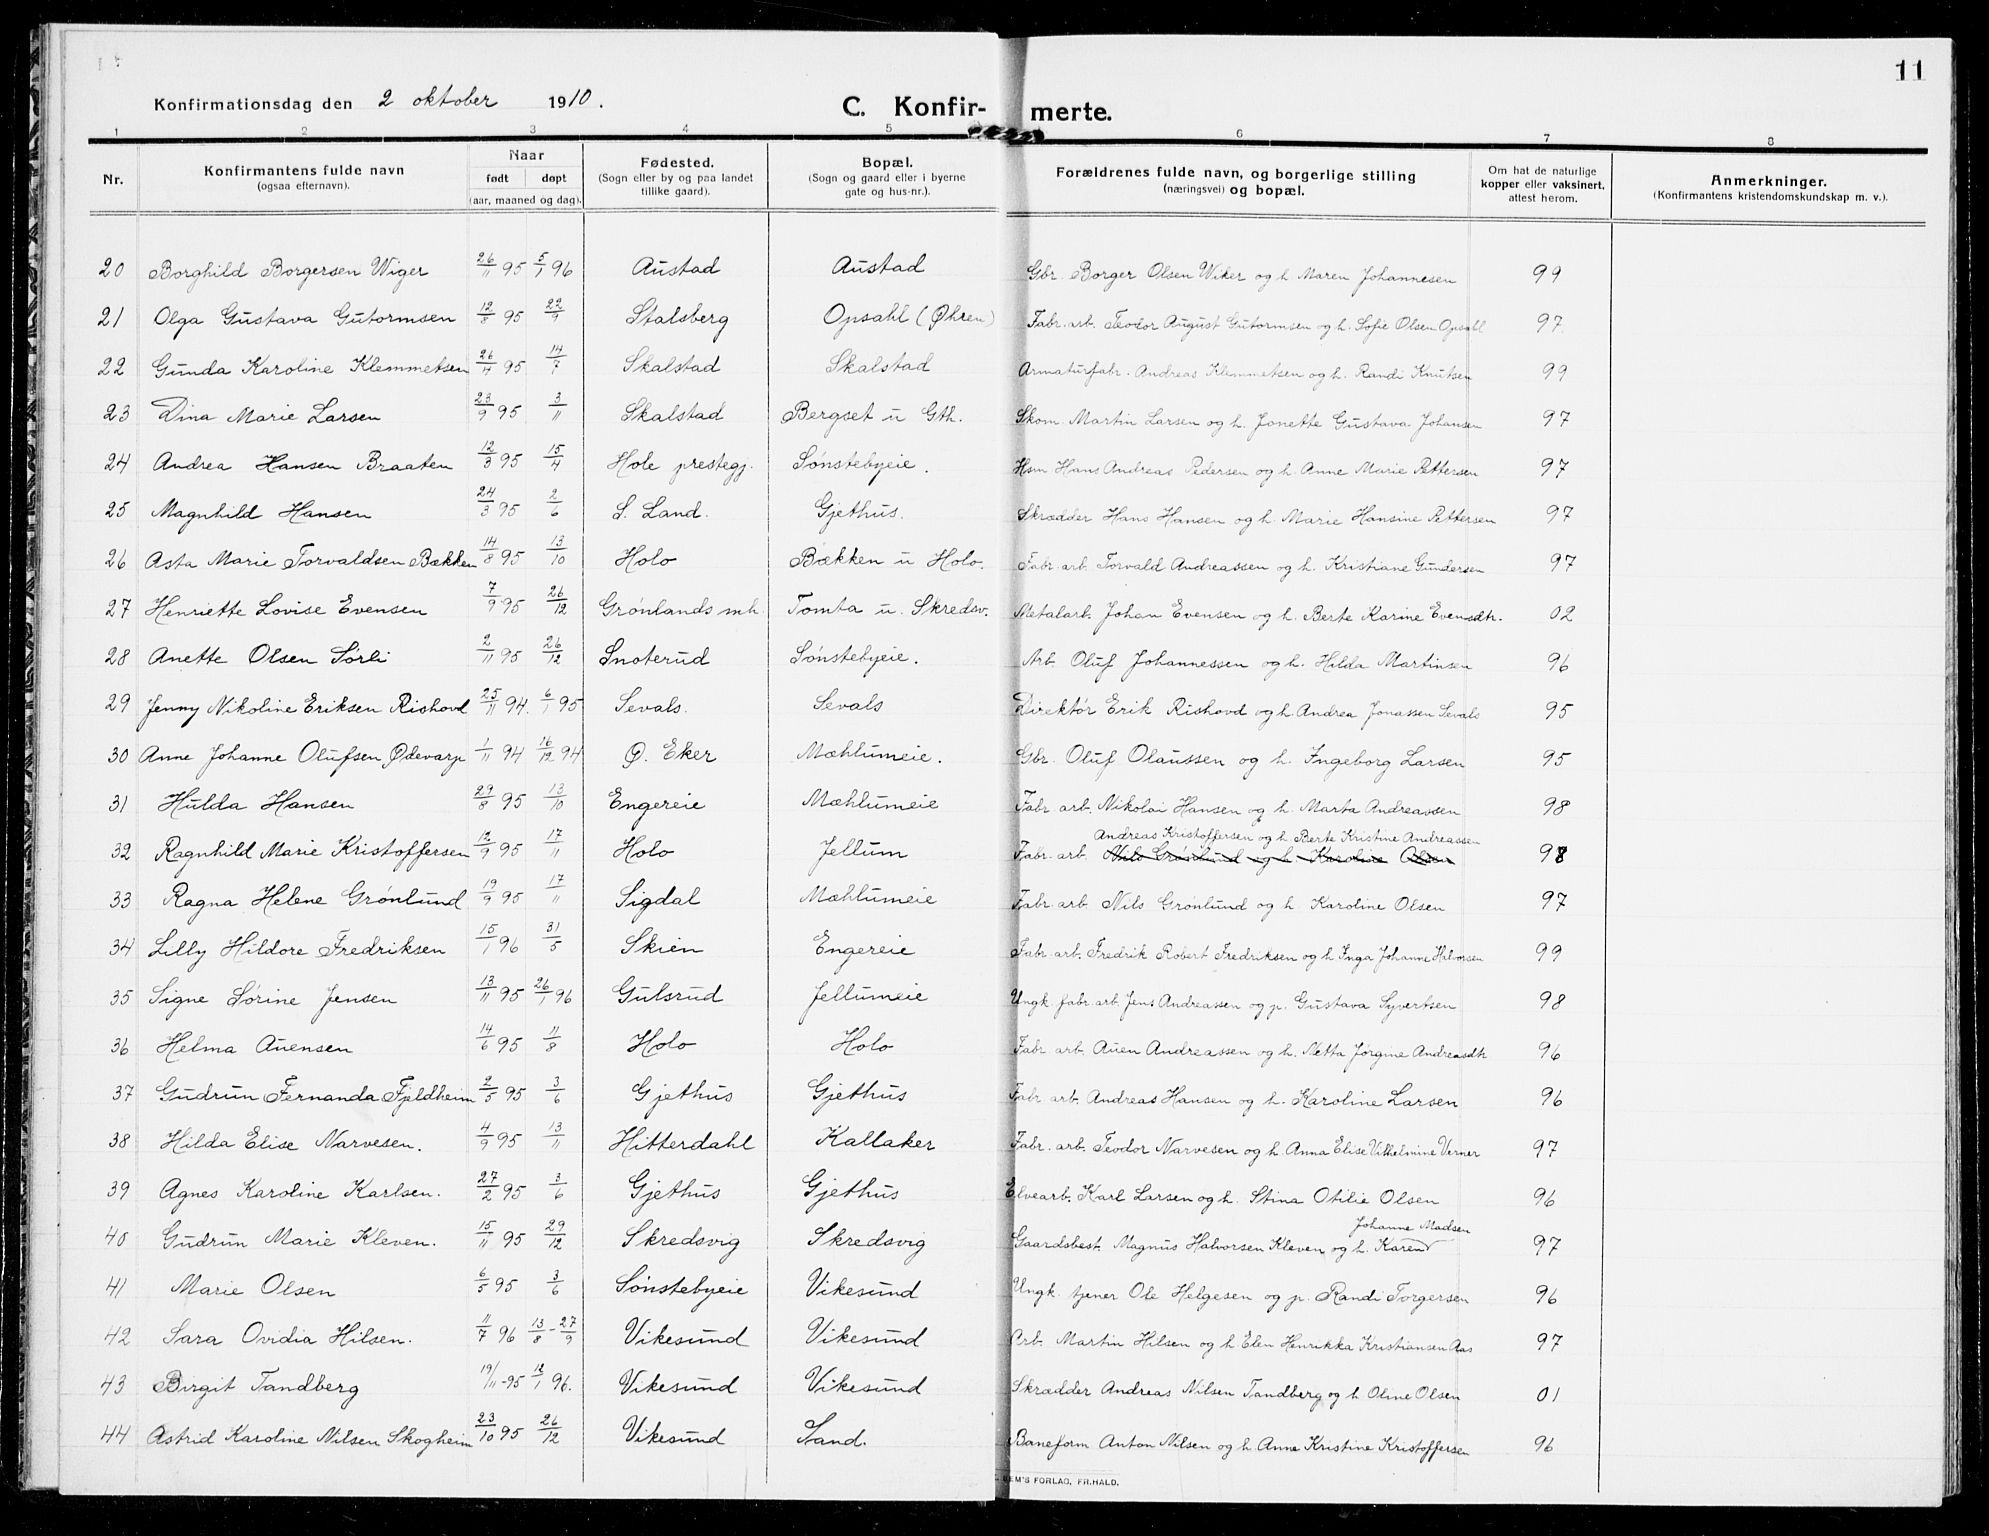 11
Konfirmationsdag den 2 oktober 1910.
C. Konfir- merte.
1 2 3 4 5 6 7 8
Nr. Konfirmantens fulde navn (ogsaa efternavn). Naar født døpt (aar, maaned og dag). Fødested. (Sogn eller by og paa landet tillike gaard). Bopæl. (Sogn og gaard eller i byerne gate og hus-nr.). Forældrenes fulde navn, og borgerlige stilling (næringsvei) og bopæl. Om hat de naturlige kopper eller vaksinert, attest herom. Anmerkninger. (Konfirmantens kristendomskundskap m. v.).
20 Borghild Borgersen Wiger 26/11 95 5/1 96 Austad Austad Gbr. Borger Olsen Wiker og h. Maren Johannesen 99
21 Olga Gustava Gutormsen 12/8 95 22/9 Stalsberg Opsahl (Øhren) Fabr. arb. Teodor August Gutormsen og h. Sofie Olsen Opsahl 97
22 Gunda Karoline Klemmetsen 26/4 95 14/7 Skalstad Skalstad Armaturfabr. Andreas Klemmetsen og h. Randi Knutsen 99
23 Dina Marie Larsen 23/9 95 3/11 Skalstad Bergset u Gth. Skom. Martin Larsen og h. Jonette Gustava Johansen 97
24 Andrea Hansen Braaten 12/3 95 15/4 Hole prestegj. Sønstebyeie. Hsm Hans Andreas Pedersen og h. Anne Marie Pettersen 97
25 Magnhild Hansen 24/3 95 2/6 S. Land. Gjethus. Skrædder Hans Hansen og h. Marie Hansine Pettersen 97
26 Asta Marie Torvaldsen Bækken 14/8 95 13/10 Holo Bækken u Holo. Fabr. arb. Torvald Andreassen og h. Kristiane Gundersen 97
27 Henriette Lovise Evensen 7/9 95 26/12 Grønlands mh. Tomta u. Skredsv. Metalarb. Johan Evensen og h. Berte Karine Evensdtr. 02
28 Anette Olsen Sørli 2/11 95 26/12 Snoterud Sønstebyeie. Arb. Oluf Johannessen og h. Hilda Martinsen 96
29 Jenny Nikoline Eriksen Rishovd 25/11 94. 6/1 95 Sevals. Sevals Direktør Erik Rishovd og h. Andrea Jonassen Sevals 95
30 Anne Johanne Olufsen Ødevarp 1/11 94 16/12 94 Ø. Eker Mæhlumeie. Gbr. Oluf Olaussen og h. Ingeborg Larsen 95
31 Hulda Hansen 29/8 95 13/10 Engereie Mæhlumeie Fabr. arb. Nikolai Hansen og h. Marta Andreassen 98
Andreas Kristoffersen og h. Berte Kristine Andreassen
32 Ragnhild Marie Kristoffersen 12/9 95 17/11 Holo Jellum Fabr. arb. Nils Grønlund og h. Karoline Olsen 98
33 Ragna Helene Grønlund 19/9 95 17/11 Sigdal Mæhlumeie Fabr. arb Nils Grønlund og h. Karoline Olsen 97
34 Lilly Hildore Fredriksen 15/1 96 31/5 Skien Engereie Fabr. arb. Fredrik Robert Fredriksen og h Inga Johanne Halvorsen 99
35 Signe Sørine Jensen 13/11 95 26/1 96 Gulsrud Jellumeie Ungk. fabr. arb. Jens Andreassen og p. Gustava Syvertsen 98
36 Helma Auensen 14/6 95 11/8 Holo Holo Fabr. arb. Auen Andreassen og h. Netta Jørgine Andreasdtr 96
37 Gudrun Fernanda Fjeldheim 2/5 95 3/6 Gjethus Gjethus Fabr. arb. Andreas Hansen og h. Karoline Larsen 96
38 Hilda Elise Narvesen. 4/9 95 13/11 Hitterdahl Kallaker Fabr. arb. Teodor Narvesen og h. Anna Elise Vilhelmine Verner 97
39 Agnes Karoline Karlsen. 27/2 95 3/6 Gjethus Gjethus Elvearb. Karl Larsen og h. Stina Otilie Olsen 96
Johanne Madsen
40 Gudrun Marie Kleven. 15/11 95 29/12 Skredsvig Skredsvig Gaardsbest. Magnus Halvorsen Kleven og h. Karen 97
41 Marie Olsen 6/5 95 3/6 Sønstebyeie Vikesund Ungk. tjener Ole Helgesen og p. Randi Torgersen 96
42 Sara Ovidia Hilsen. 11/7 96 13/8 - 27/9 Vikesund Vikesund Arb. Martin Hilsen og h Elen Henrikka Kristiansen Aas 97
43 Birgit Tandberg 19/11 -95 12/1 96. Vikesund Vikesund Skrædder Andreas Nilsen Tandberg og h Oline Olsen 01
44 Astrid Karoline Nilsen Skogheim 23/10 95 26/12 Vikesund Sand. Baneform. Anton Nilsen og h. Anne Kristine Kristoffersen 96
FORLAG, FR. HALD.